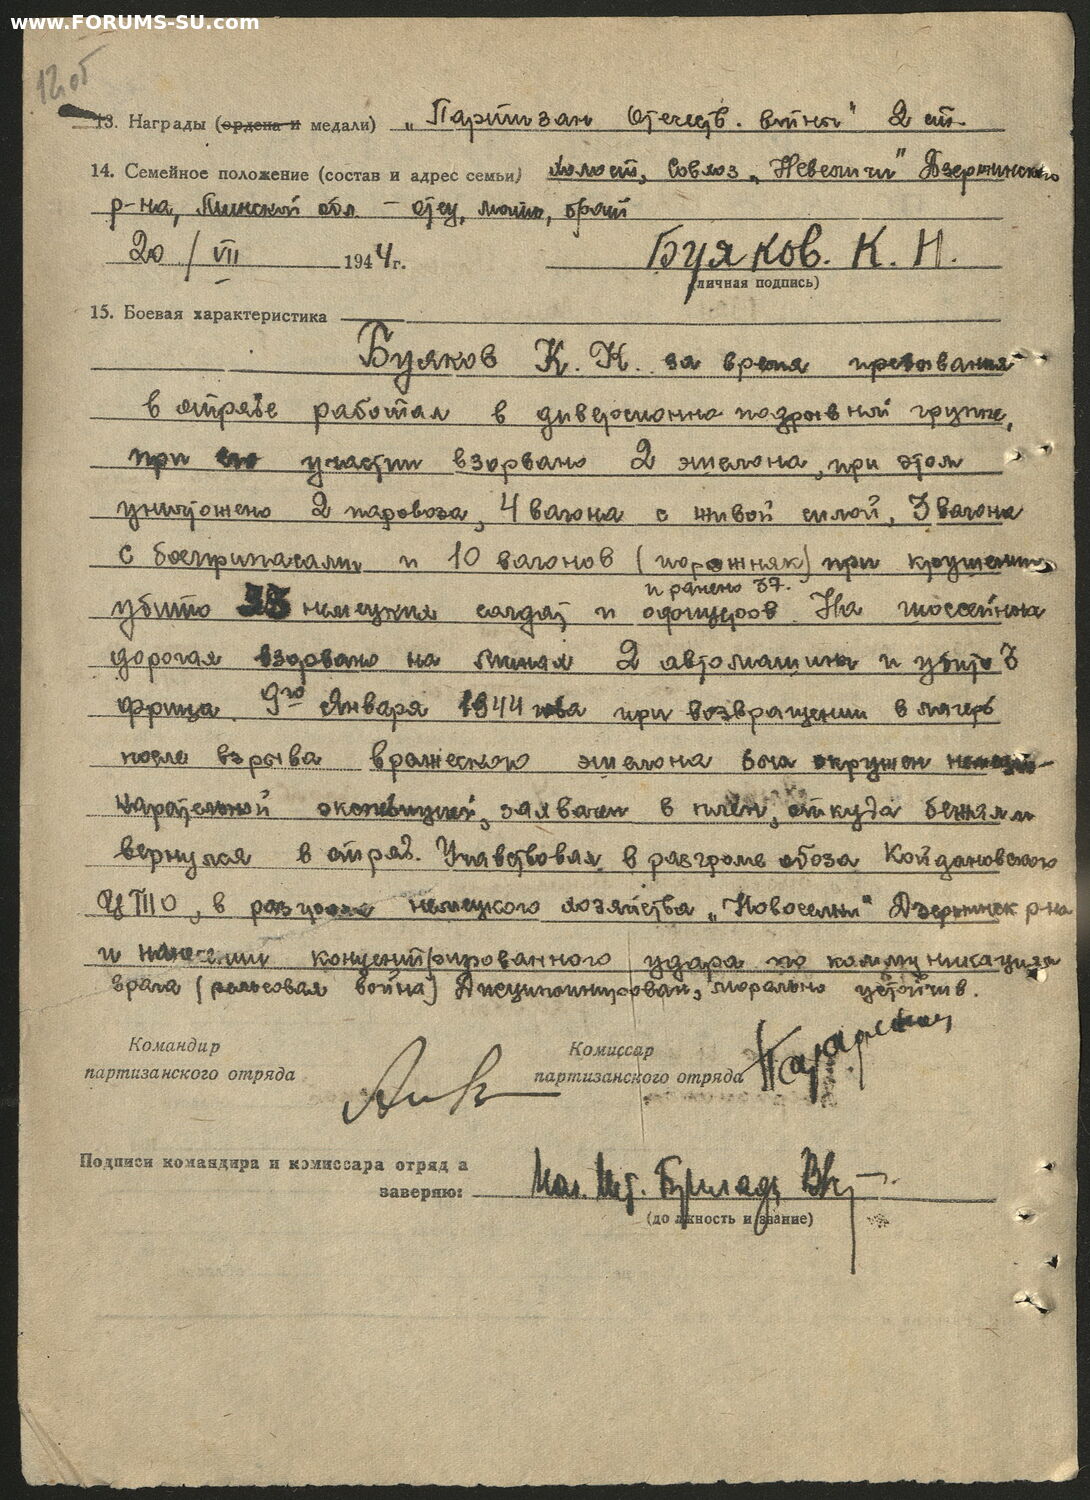 www.FORUMS-SU.com
13. Награды (ордена и медали) „Партизан Отечеств. войны" 2 ст.
14. Семейное положение (состав и адрес семьи) холост, совхоз „Невеличи" Дзержинского
р-на, Минской обл. – отец, мать, брат
20 / VII 1944 г. Буяков. К. Н.
(личная подпись)
15. Боевая характеристика
Буяков К. Н. за время пребывания
в отряде работал в диверсионно подрывной группе,
при его участии взорвано 2 эшелона, при этом
уничтожено 2 паровоза, 4 вагона с живой силой, 3 вагона
с боеприпасами и 10 вагонов (порожняк) при крушении
и ранено 37.
убито немецких солдат и офицеров. На шоссейных
дорогах взорвано на минах 2 автомашины и убито 3
фрица. 9го Января 1944 года при возвращении в лагерь
после взрыва вражеского эшелона был окружен
карательной экспедицией, захвачен в плен, откуда бежал и
вернулся в отряд. Участвовал в разгроме обоза Койдановского
ЦТЮ, в разгроме немецкого хозяйства „Новоселки" Дзержинск р-на
и нанесении концентрированного удара по коммуникациям
врага (рельсовая война) Дисциплинирован, морально устойчив.
Командир
партизанского отряда
Комиссар
партизанского отряда
Подписи командира и комиссара отряда
заверяю:
(должность и звание)